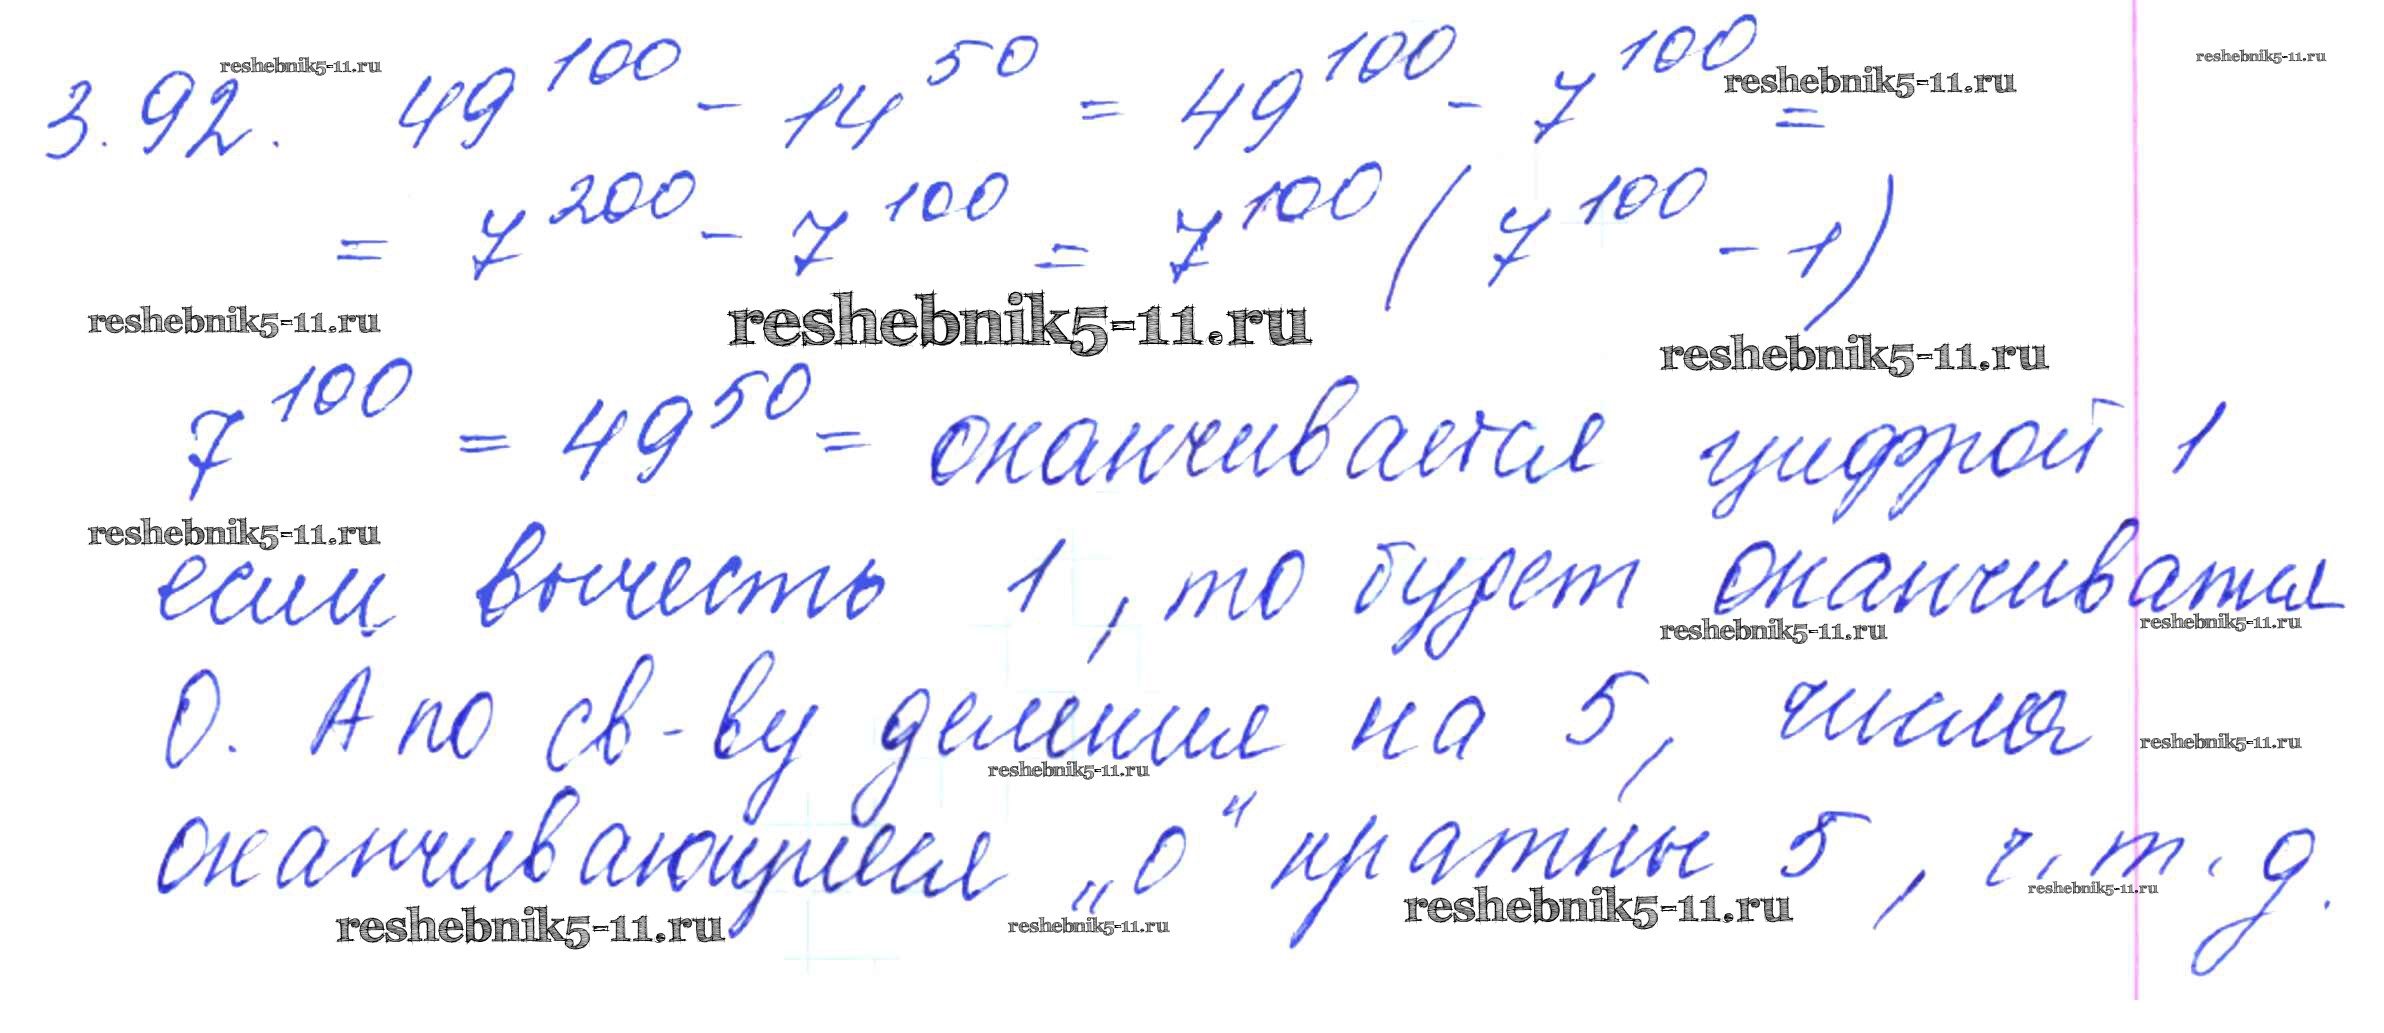 reshebnik5-11.ru
reshebnik5-11.ru
3.92. 49^100 - 14^50 = 49^100 - 7^100 =
reshebnik5-11.ru
= 7^200 - 7^100 = 7^100 (7^100 - 1)
reshebnik5-11.ru
reshebnik5-11.ru
reshebnik5-11.ru
7^100 = 49^50 = оканчивается цифрой 1
reshebnik5-11.ru
если вычесть 1, то будет оканчиватся
reshebnik5-11.ru
reshebnik5-11.ru
0. А по св-ву деления на 5, числа
reshebnik5-11.ru
reshebnik5-11.ru
оканчивающиеся „0“ кратны 5, ч.т.д.
reshebnik5-11.ru
reshebnik5-11.ru
reshebnik5-11.ru
reshebnik5-11.ru